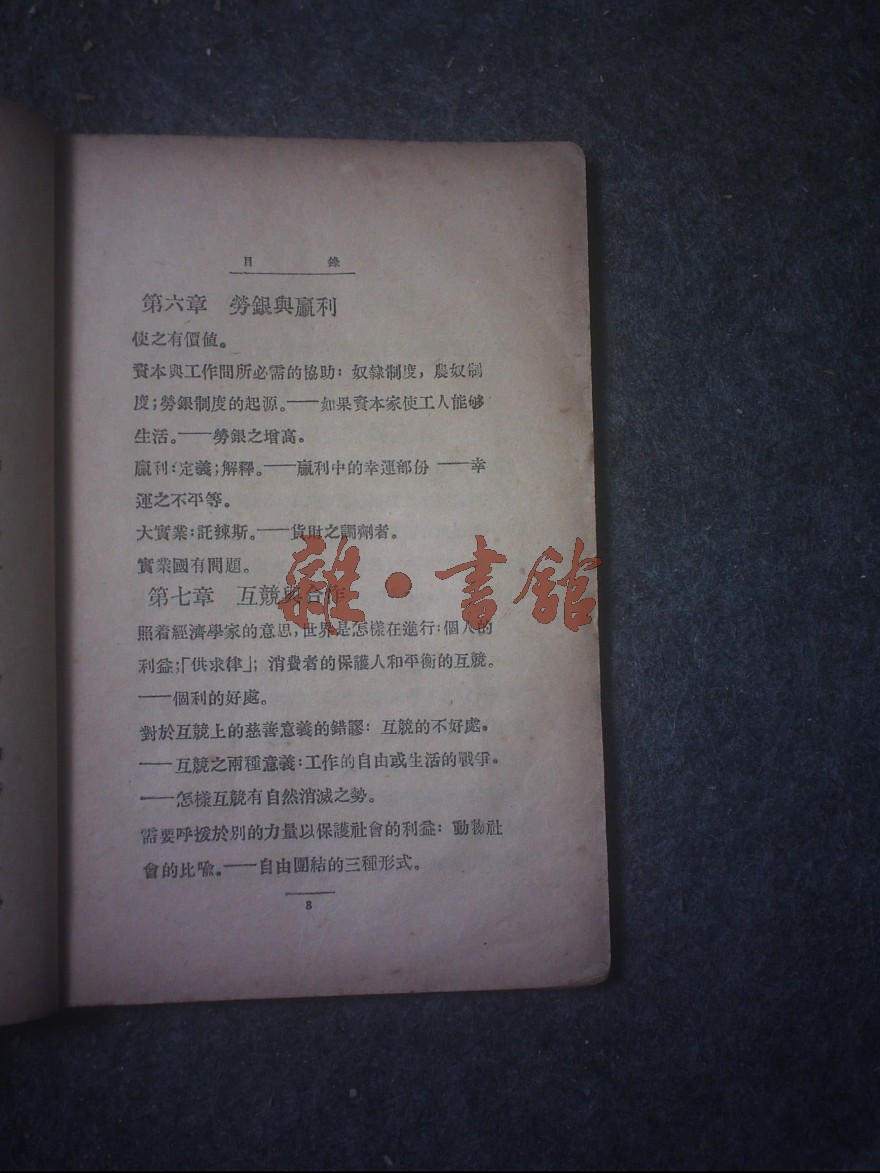 目錄
第六章 勞銀與贏利
使之有價値。
資本與工作間所必需的協助：奴隸制度，農奴制
度；勞銀制度的起源。——如果資本家使工人能够
生活。——勞銀之增高。
贏利：定義；解釋。——贏利中的幸運部份——幸
運之不平等。
大實業：託辣斯。——貨財之調劑者。
實業國有問題。
第七章 互競與合作
雜·書舘
照着經濟學家的意思，世界是怎樣在進行：個人的
利益；「供求律」；消費者的保護人和平衡的互競。
——個利的好處。
對於互競上的慈善意義的錯謬：互競的不好處。
——互競之兩種意義：工作的自由或生活的戰爭。
——怎樣互競有自然消滅之勢。
需要呼援於別的力量以保護社會的利益：動物社
會的比喩。——自由團結的三種形式。
8